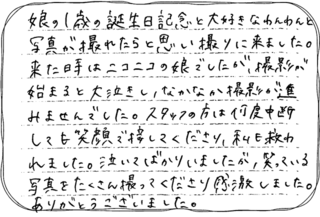 娘の1歳の誕生日記念と大好きなわんわんと
写真が撮れたらと思い撮りに来ました。
来た時はニコニコの娘でしたが、撮影が
始まると大泣きし、なかなか撮影が進
みませんでした。スタッフの方は何度中断
しても笑顔で接してくださり、私も救わ
れました。泣いてばかりいましたが、笑っている
写真をたくさん撮ってくださり感激しました。
ありがとうございました。